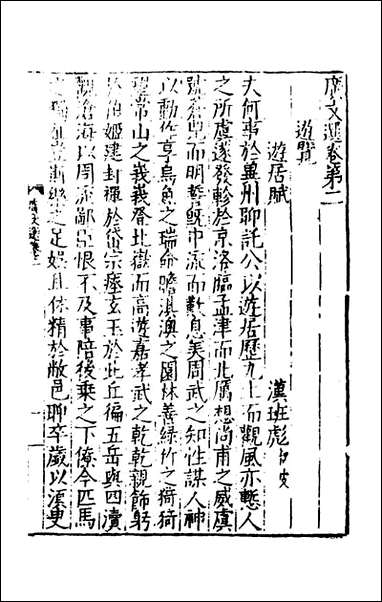 廣文選卷第二
遊覽
遊居賦
漢班彪
夫何事於冀州聊託公以遊居歷九土而觀風亦慙人
之所虞遂發軫於京洛臨孟津而北厲想尚甫之威虞
號蒼兕而明誓旣中流而歎息美周武之知性謀人神
以動作享烏魚之瑞命瞻淇澳之園林善綠竹之猗猗
望常山之峩峩登北嶽而高遊嘉孝武之乾乾親飾躬
於伯姬建封禪於岱宗瘞玄玉於此丘徧五岳與四瀆
觀滄海以周流鄙臣恨不及事陪後乘之下僚今匹馬
之獨征豈斯樂之足娛且休精於敝邑聊卒歲以須臾
廣文選卷二